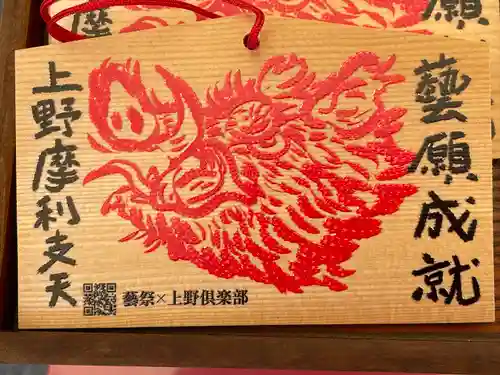 藝願成就
上野摩利支天
藝祭×上野倶楽部